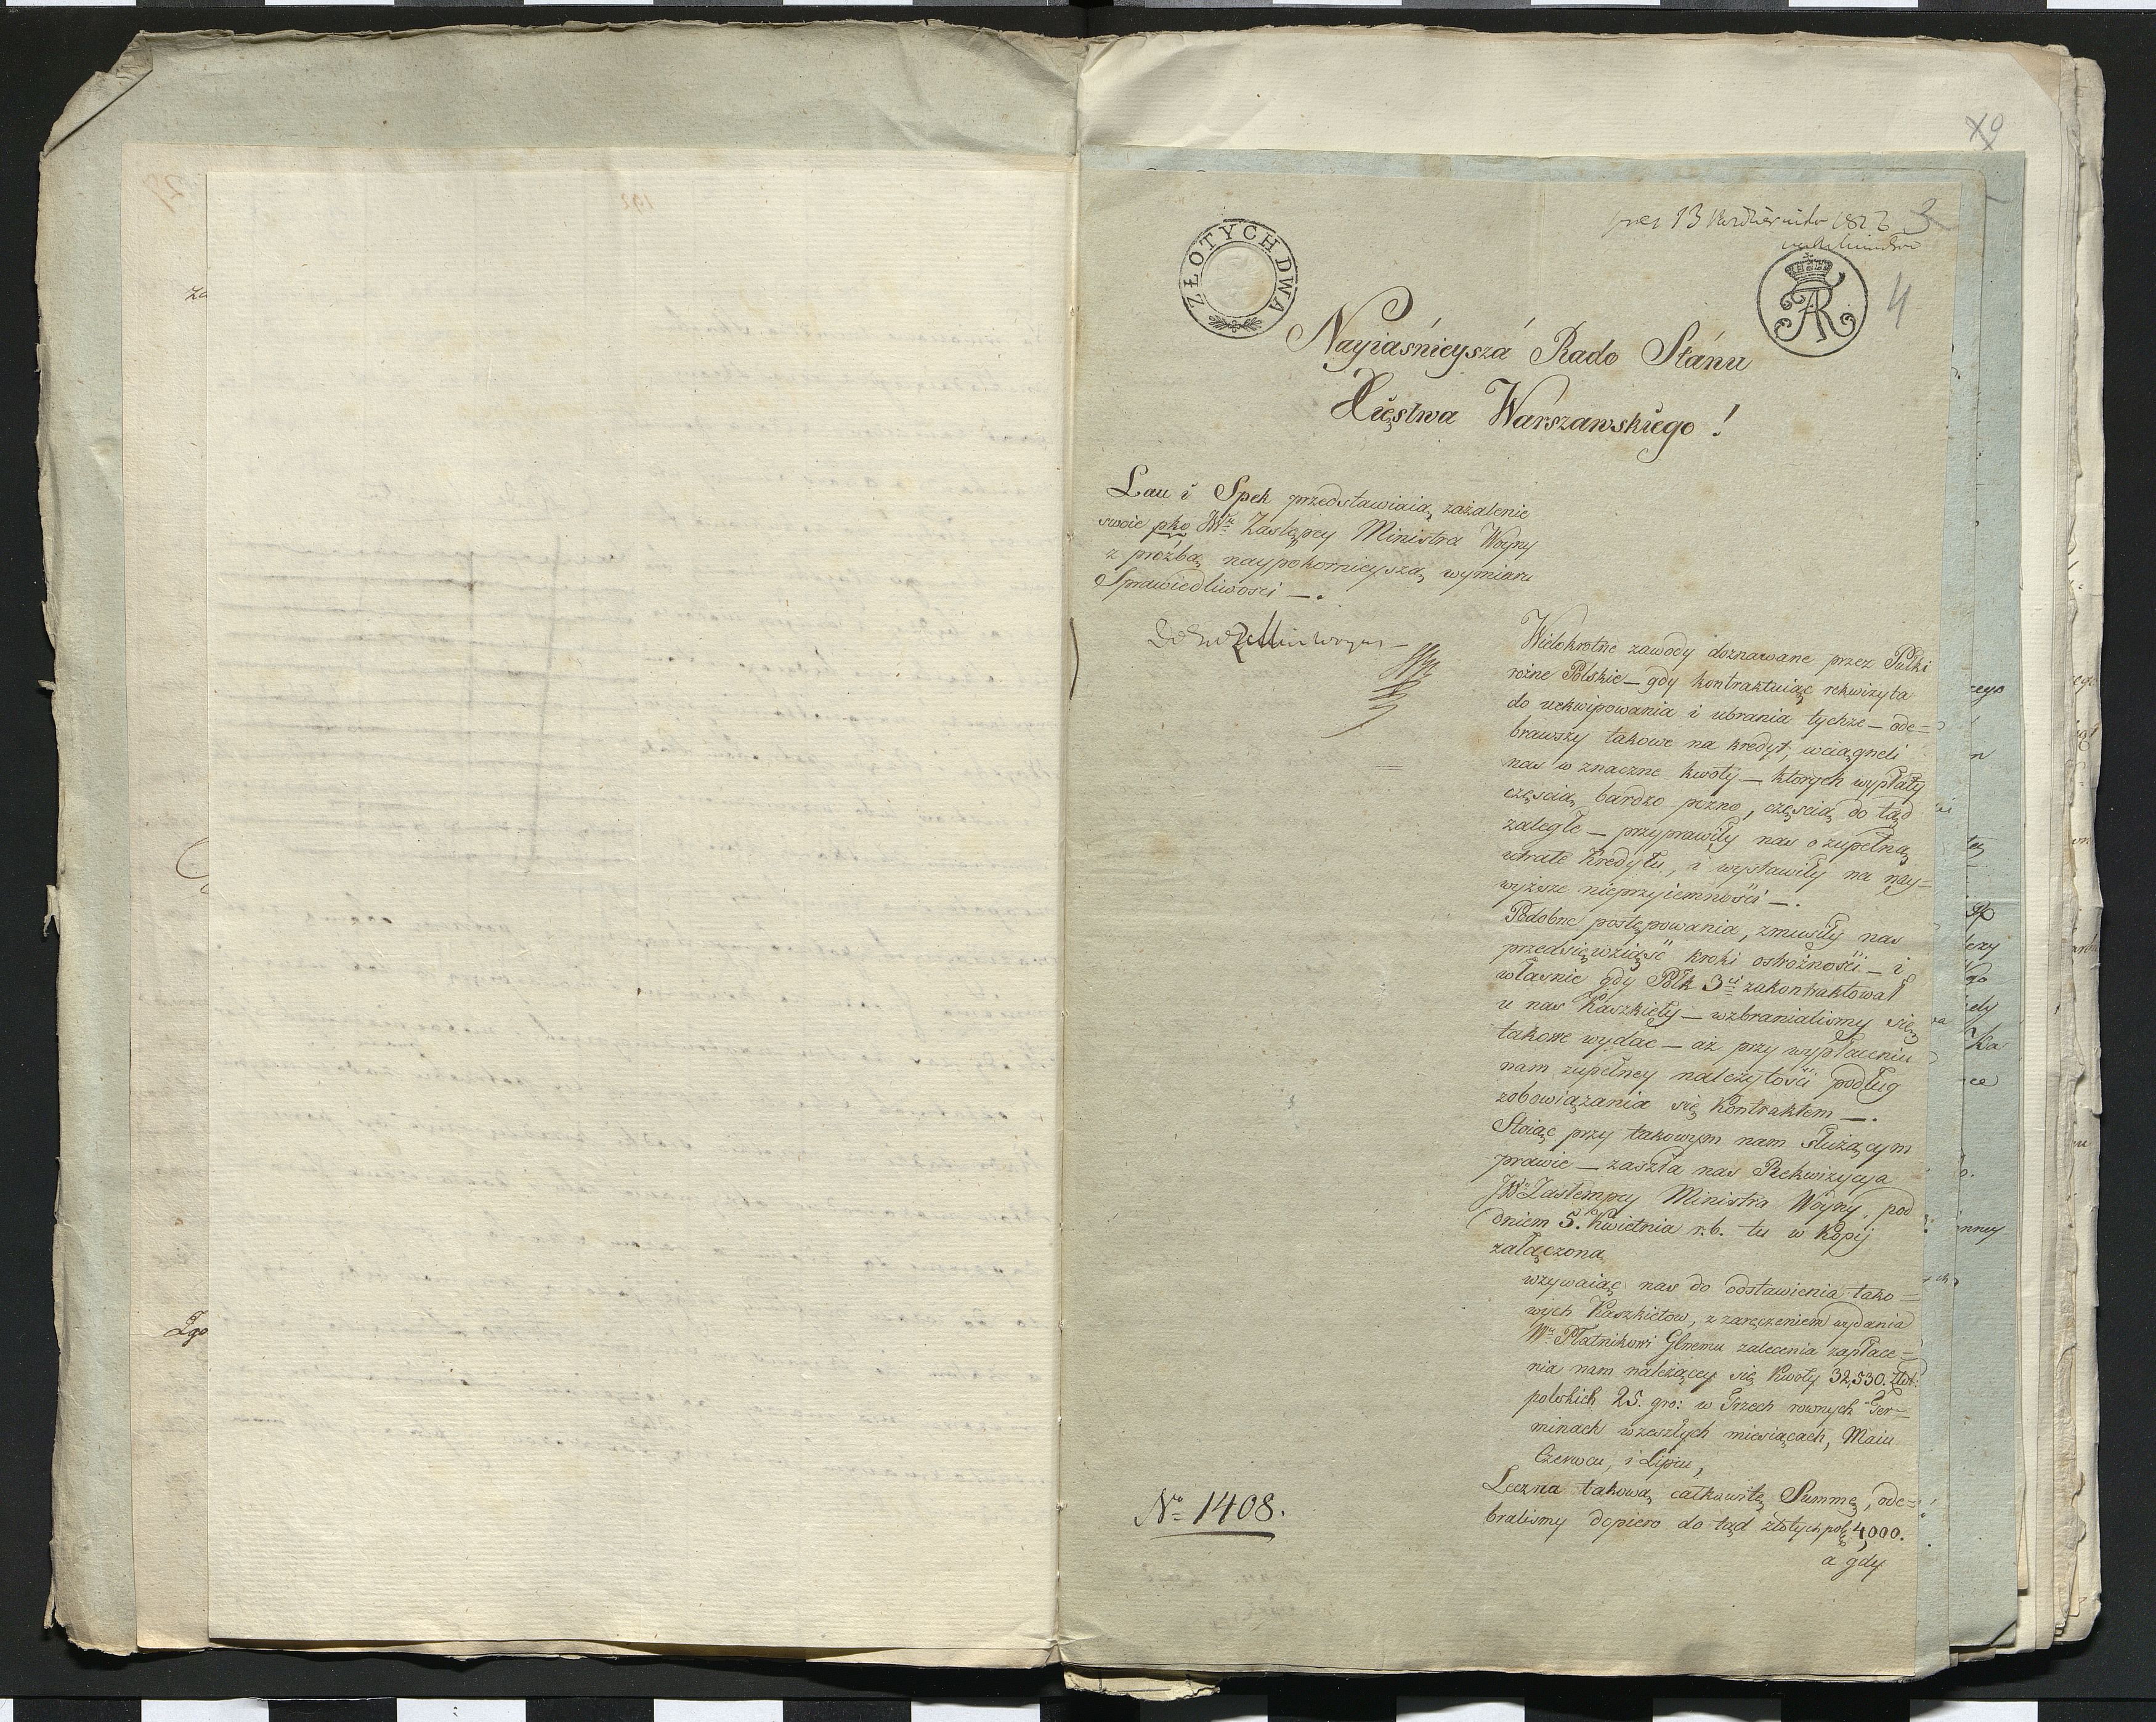 9
13 Października
3
ZŁOTYCH DWA
AR
4
Nayiaśnieysza Rado Stánu
Xięstwa Warszawskiego !
Lau i Spek przedstawiaią zażalenie
swoie pko JWu Zastępcy Ministra Woyny
z proźbą naypokornieyszą wymiaru
Sprawiedliwości —.
Wielokrotne zawody doznawane przez Pułki
rożne Polskie — gdy kontraktuiąc rekwizyta
do uekwipowania i ubrania tychże — ode=
brawszy takowe na kredyt, wciągneli
nas w znaczne kwoty — ktorych wypłaty
częścią bardzo pozno, częścią do tąd
zaległe — przyprawiły nas o zupełną
utratę Kredytu, i wystawiły na nay=
wyższe nieprzyiemności —.
Podobne postępowania, zmusiły nas
przedsięwziąść kroki ostrożności — i
własnie gdy Półk 3ci zakontraktował
u nas Kaszkiety — wzbranialismy się
takowe wydac — aż przy wypłaceniu
nam zupełney należytości podług
zobowiązania się Kontraktem —.
Stoiąc przy takowym nam służącym
prawie — zaszła nas Rekwizycya
JWo Zastempcy Ministra Woyny, pod
dniem 5. Kwietnia r.b. tu w Kopij
załączona
wzywaiąc nas do odstawienia tako=
wych Kaszkietow, z zaręczeniem wydania
Wu Płatnikowi Glnemu zalecenia zapłace=
nia nam należącey się Kwoty 32,530. Złot:
polskich 25. gro: w Trzech rownych Ter=
minach w zeszłych miesiącach, Maiu
Czerwcu, i Lipcu,
Lecz na takową całkowitą Summę, ode=
bralismy dopiero do tąd złotych pol: 4,000.
a gdy
No 1408.